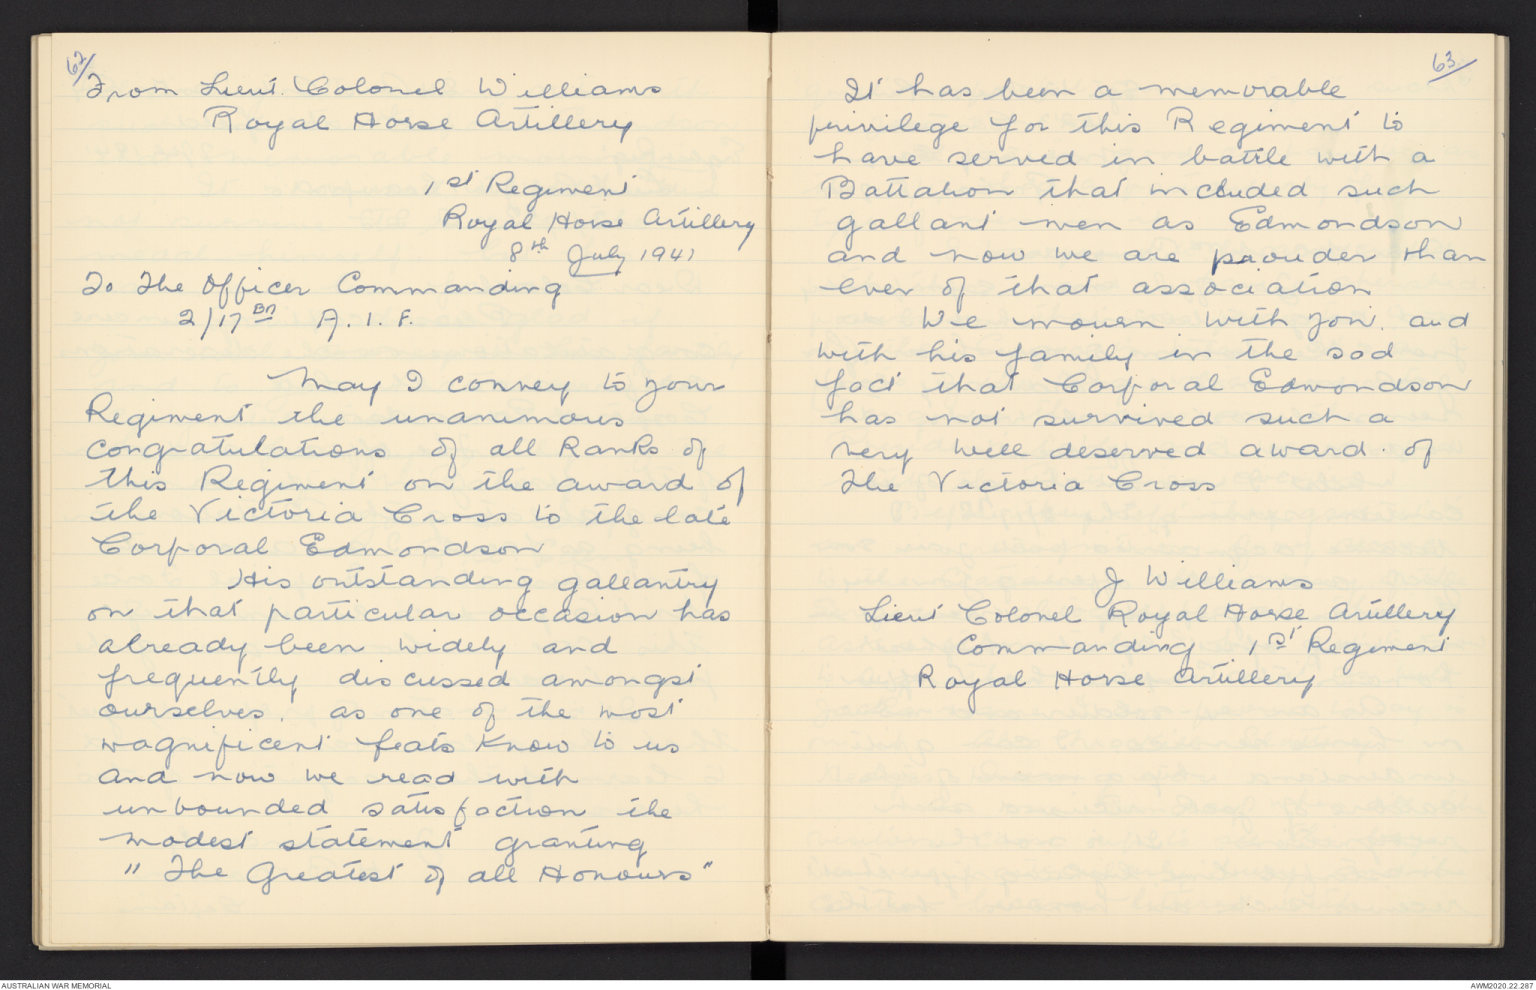 62/
From Lieut. Colonel Williams
Royal Horse Artillery
1st Regiment
Royal Horse Artillery
8th July 1941
To The Officer Commanding
2/17 Bn A.I.F.
May I convey to your
Regiment the unanimous
congratulations of all Ranks of
this Regiment on the award of
the Victoria Cross to the late
Corporal Edmondson
His outstanding gallantry
on that particular occasion has
already been widely and
frequently discussed amongst
ourselves. as one of the most
magnificent feats know to us
and now we read with
unbounded satisfaction the
modest statement granting
"The Greatest of all Honours"
63.
It has been a memorable
privilege for this Regiment to
have served in battle with a
Battalion that included such
gallant men as Edmondson
and now we are prouder than
ever of that association
We mourn with you. and
with his family in the sad
fact that Corporal Edmondson
has not survived such a
very well deserved award. of
The Victoria Cross
J Williams
Lieut Colonel Royal Horse Artillery
Commanding 1st Regiment
Royal Horse Artillery
AUSTRALIAN WAR MEMORIAL
AWM2020.22.287